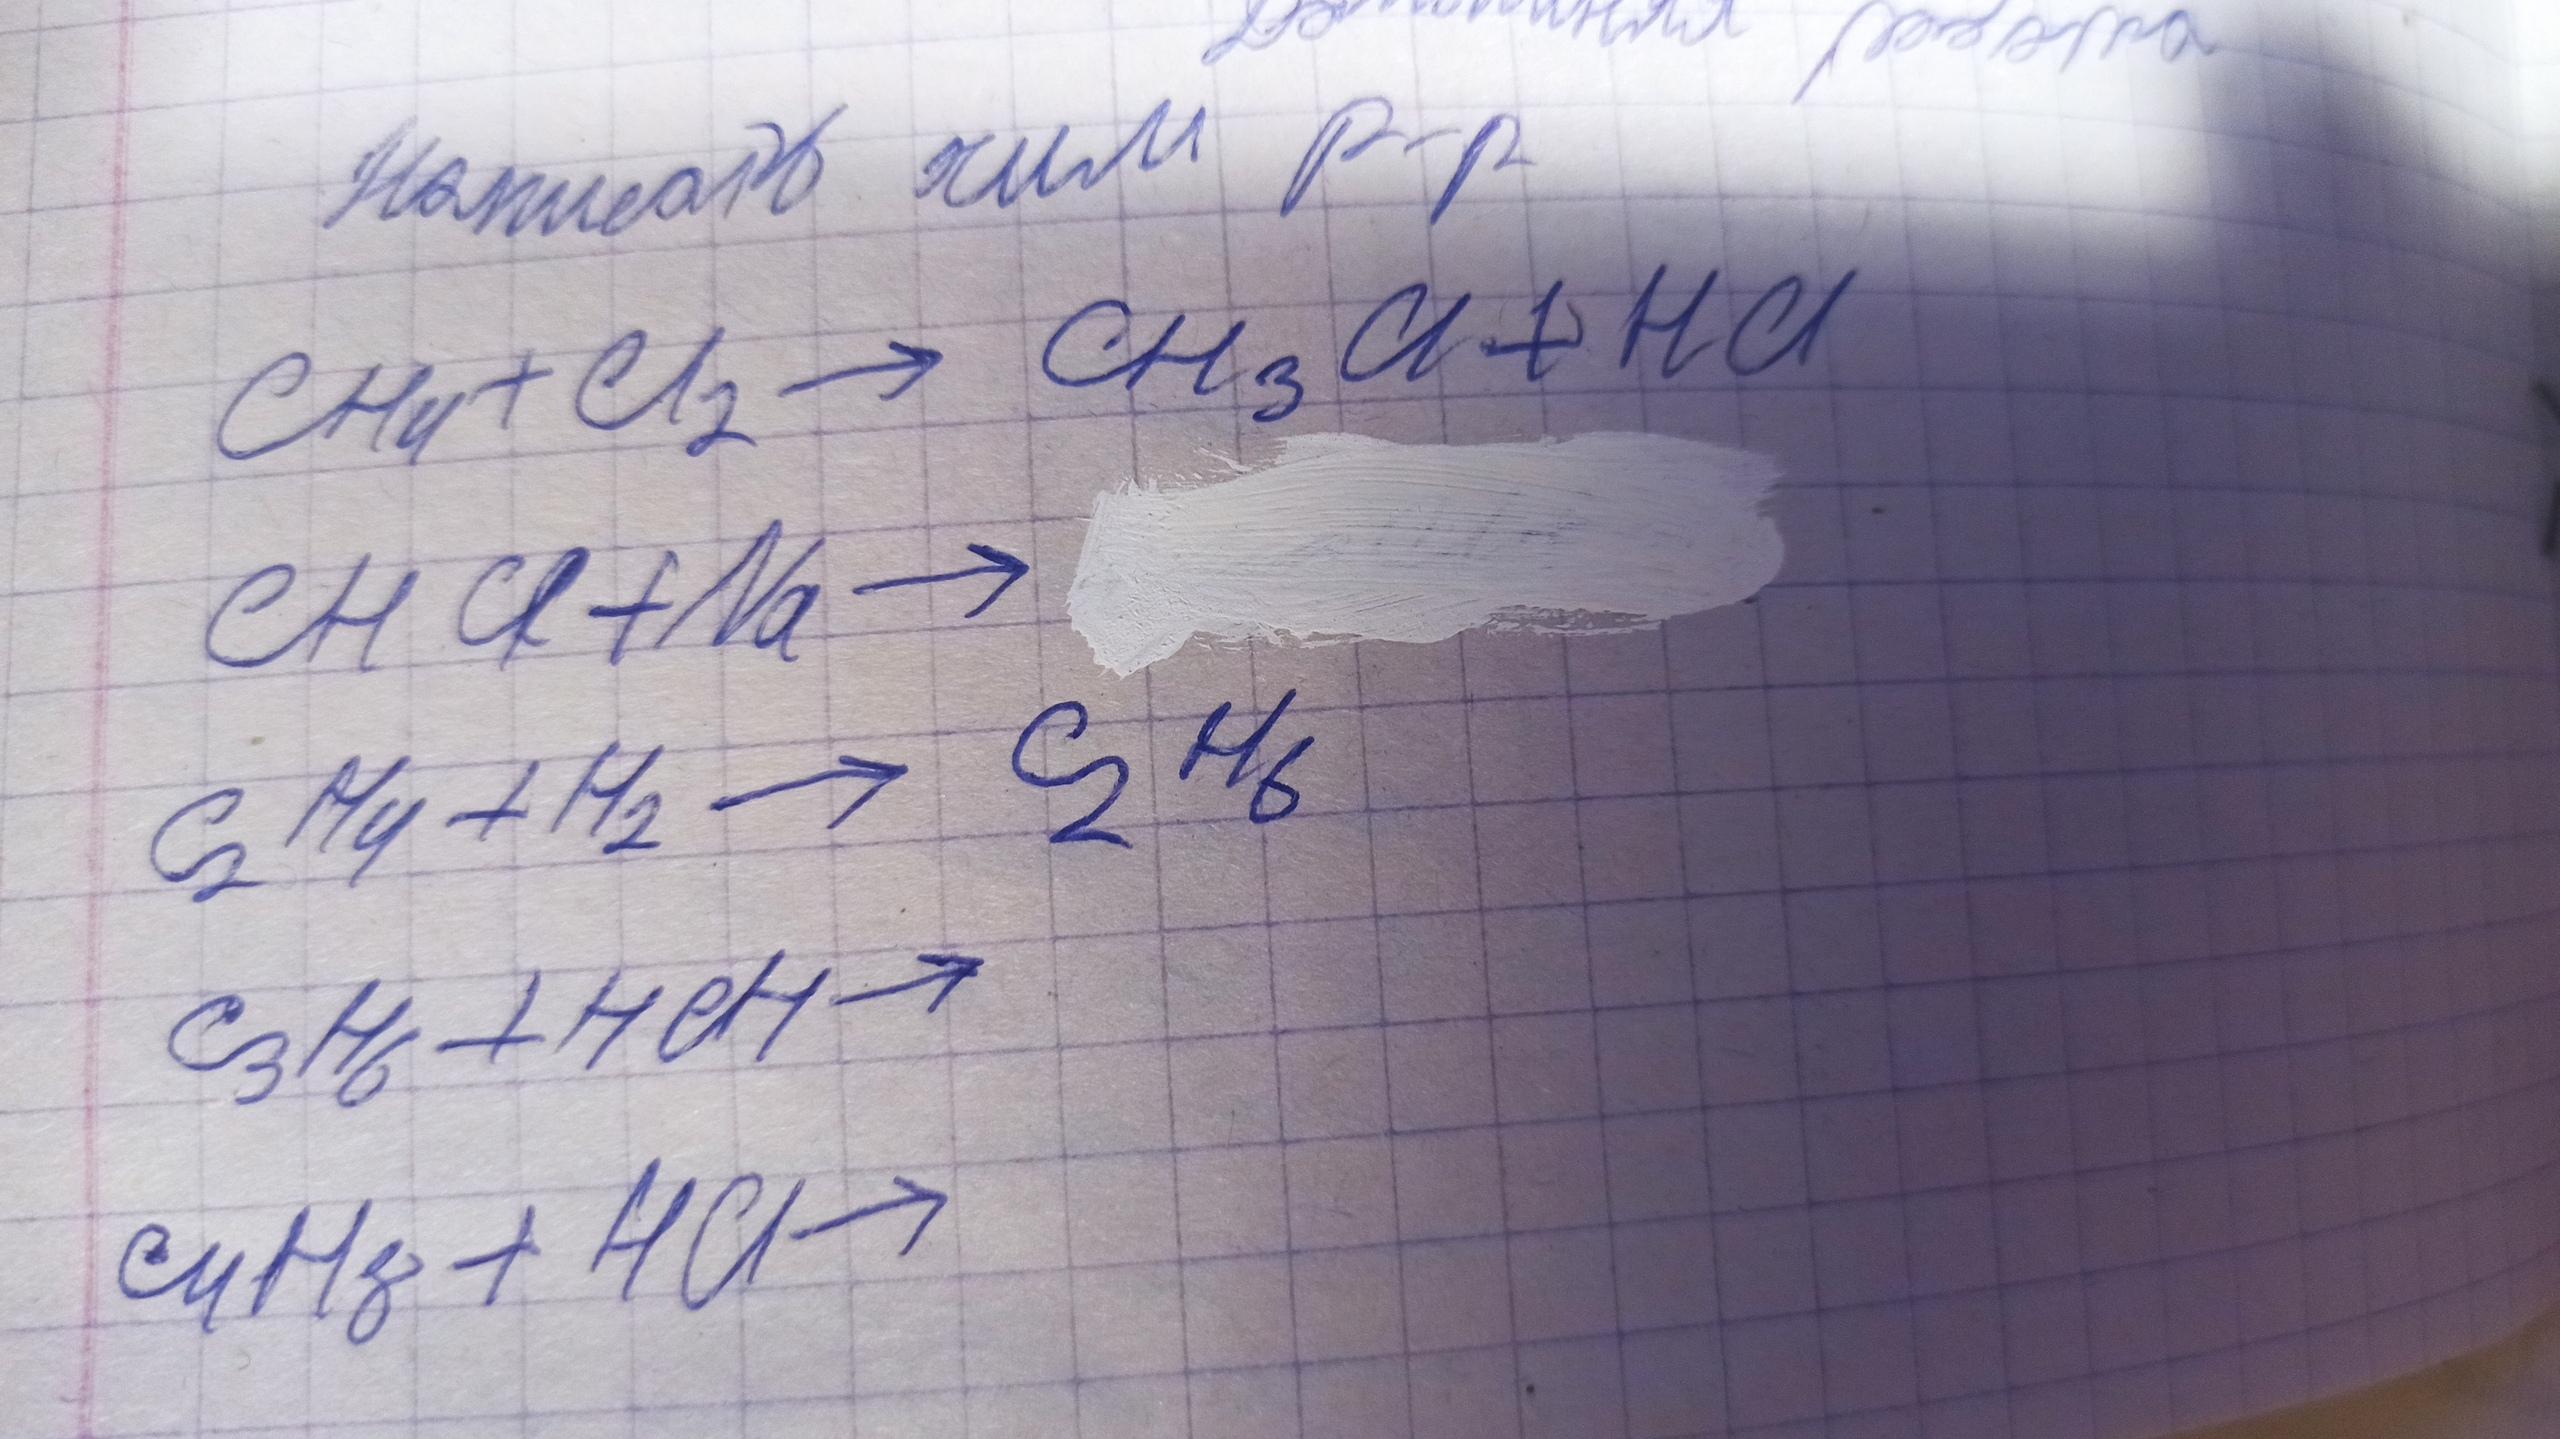 Домашняя работа
Написать хим р-р
CH4 + Cl2 → CH3 Cl + HCl
CH Cl + Na →
C2 H4 + H2 → C2 H6
C3 H6 + H CH →
C4 H8 + HCl →